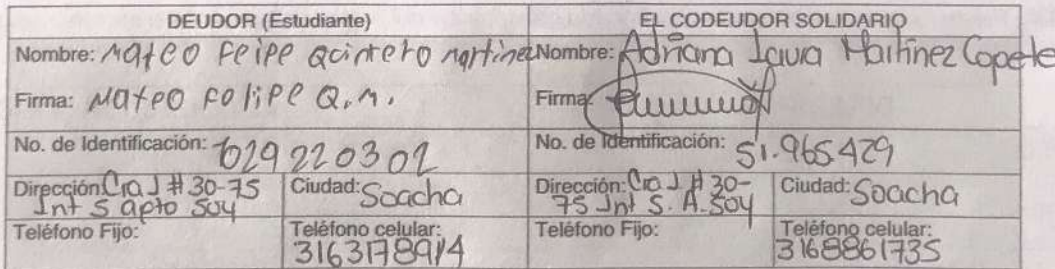 DEUDOR (Estudiante)
EL CODEUDOR SOLIDARIO
Nombre: Mateo Feipe Qcintero martinez
Nombre: Adriana Laura Martinez Copete
Firma: Mateo Felipe Q.M.
Firma:
No. de Identificación: 1029 220302
No. de Identificación: 51.965429
Dirección: Cra J # 30-75
Int 5 apto 504
Ciudad: Soacha
Dirección: Cra J # 30-
75 Int 5. A. 504
Ciudad: Soacha
Teléfono Fijo:
Teléfono celular:
3163178914
Teléfono Fijo:
Teléfono celular:
3168861735